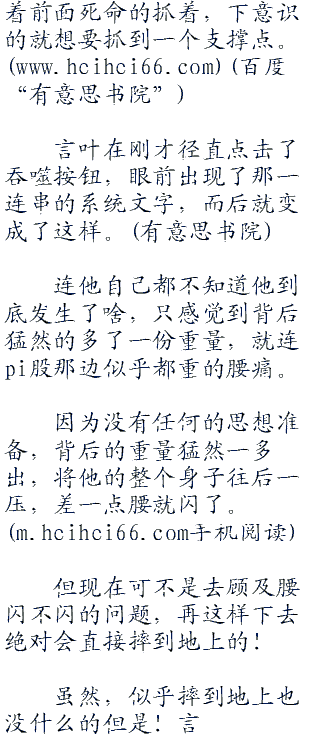 着前面死命的抓着，下意识
的就想要抓到一个支撑点。
(www.hcihci66.com)(百度
“有意思书院”)
言叶在刚才径直点击了
吞噬按钮，眼前出现了那一
连串的系统文字，而后就变
成了这样。(有意思书院)
连他自己都不知道他到
底发生了啥，只感觉到背后
猛然的多了一份重量，就连
pi股那边似乎都重的腰痛。
因为没有任何的思想准
备，背后的重量猛然一多
出，将他的整个身子往后一
压，差一点腰就闪了。
(m.hcihci66.com手机阅读)
但现在可不是去顾及腰
闪不闪的问题，再这样下去
绝对会直接摔到地上的！
虽然，似乎摔到地上也
没什么的但是！言